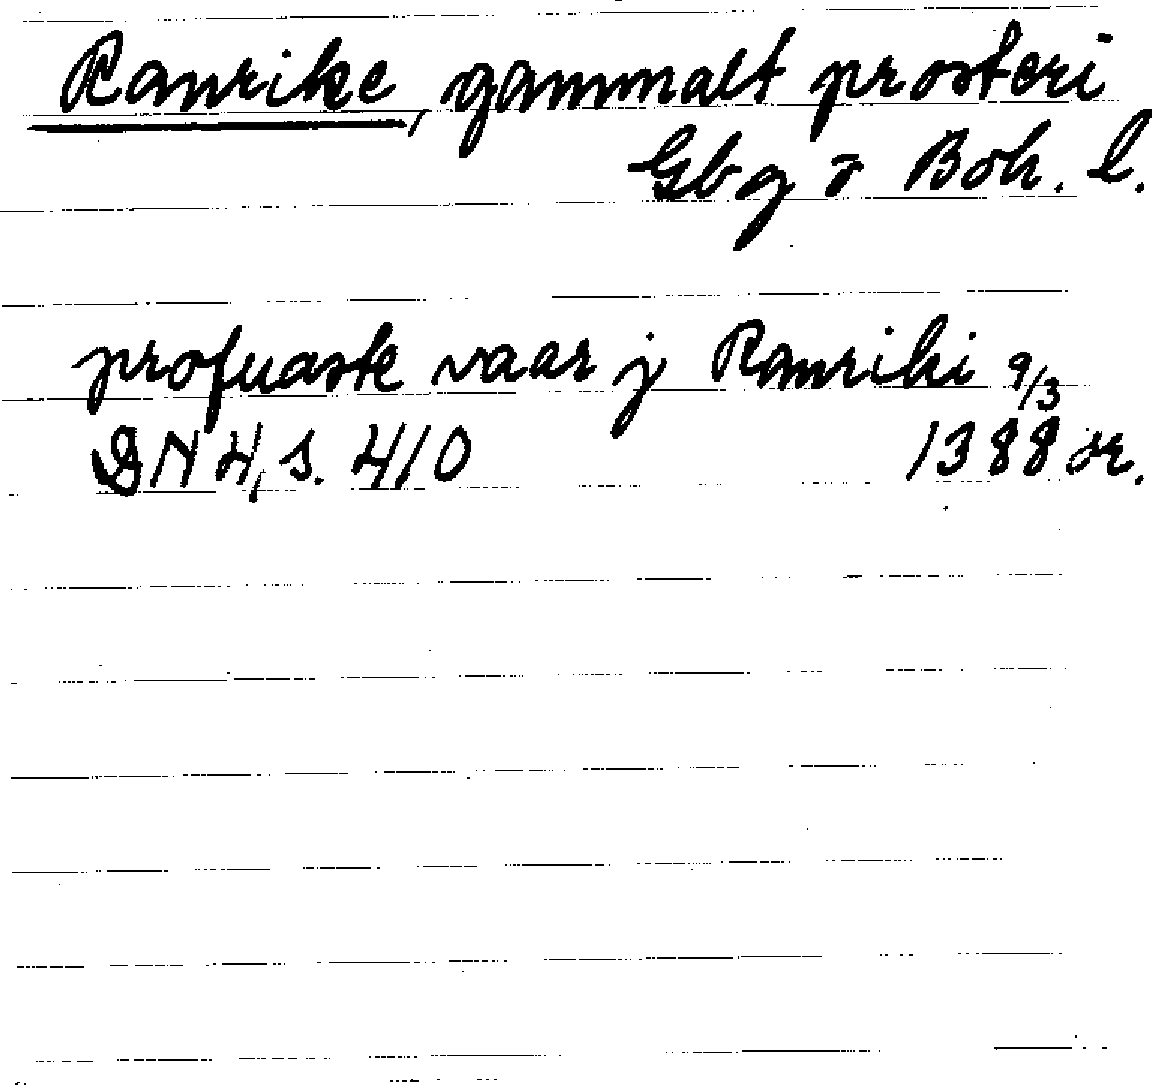 Ranrike, gammalt prosteri
Gbg o Boh. l.
profuaste vaar j Ranriki 9/3
DN 4, s. 410 1388 or.